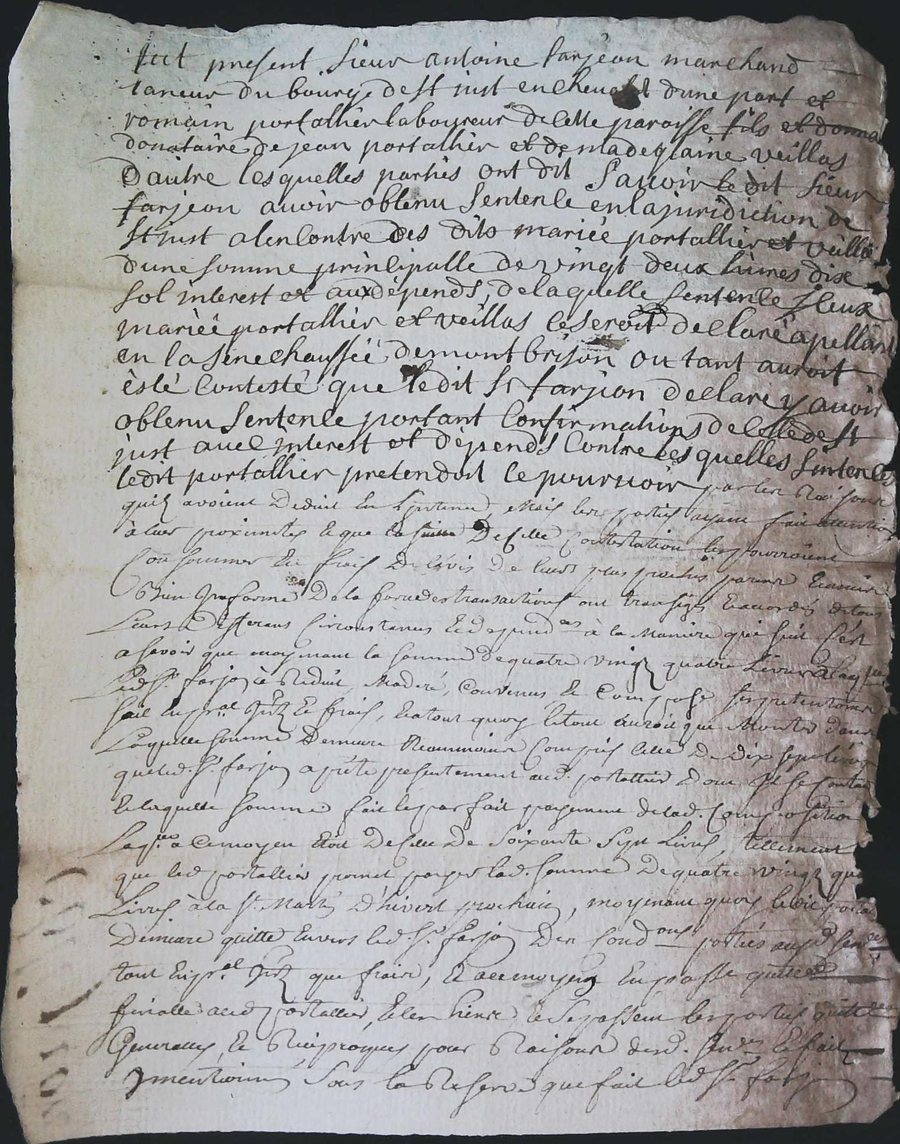 fut present sieur antoine farjeon marchand
taneur du bourg de st just en chevalet d'une part et
romain portallier laboureur de cette paroisse fils et donna
donataire de jean portallier et de madeglaine veillas
d'autre lesquelles parties ont dit sauoir ledit sieur
farjeon auoir obtenu sentence en la juridiction de
st just a lencontre des dits mariée portallier et veillas
d'une somme principalle de vingt deux liures dix
sol interest et aux depends, de laquelle sentence yceux
mariéé portallier et veillas se seroit declaré apellant
en la senechaussée de montbrison ou tant auroit
esté contesté que ledit sr farjion declare y auoir
obtenu sentence portant confirmations de celle de st
just auec interest et depends contre lesquelles sentences
ledit portallier pretendoit se pouruoir par les raisons
quil avoient deduit en Mais les parties ayant fait attention
à leur proximité et que la suitte de cette contestation les pourroient
consommer en frais de lavis de leurs plus proches parens
bien informé de la force des transactions ont transigé et acordé de tous
leurs differens circonstances et dependces à la maniere que suit C'est
a savoir que moyenant la somme de quatre vingt quatre livres
led. sr. farjon à Reduit, Moderé, convenus et composé ses pretentions
soit en pral frais, et a tout quoy le tout auroit que Monté dans
Laquelle somme demeure Neanmoins Compris celle de dix sept livres
que led. sr. farjon a preté presentement aud. portallier dont il se contente
de laquelle somme fait le parfait payement de lad. Composition
a ce moyen étoit de celle de soixante sept livres, tellement
que led portallier promet payer lad. somme de quatre vingt qua
Livres à la st Martin d'hivert prochain, moyenant quoy ledit porta
Demeure quitte envers led. sr. farjon
tout en pral que fraix, et au moyen en passe quittce
finalle aud portallier, se passent les parties quittan
Generalles, et Reciproques pour Raison desd. et fait
y mentionné sous la Reserve que fait led. sr. farjon